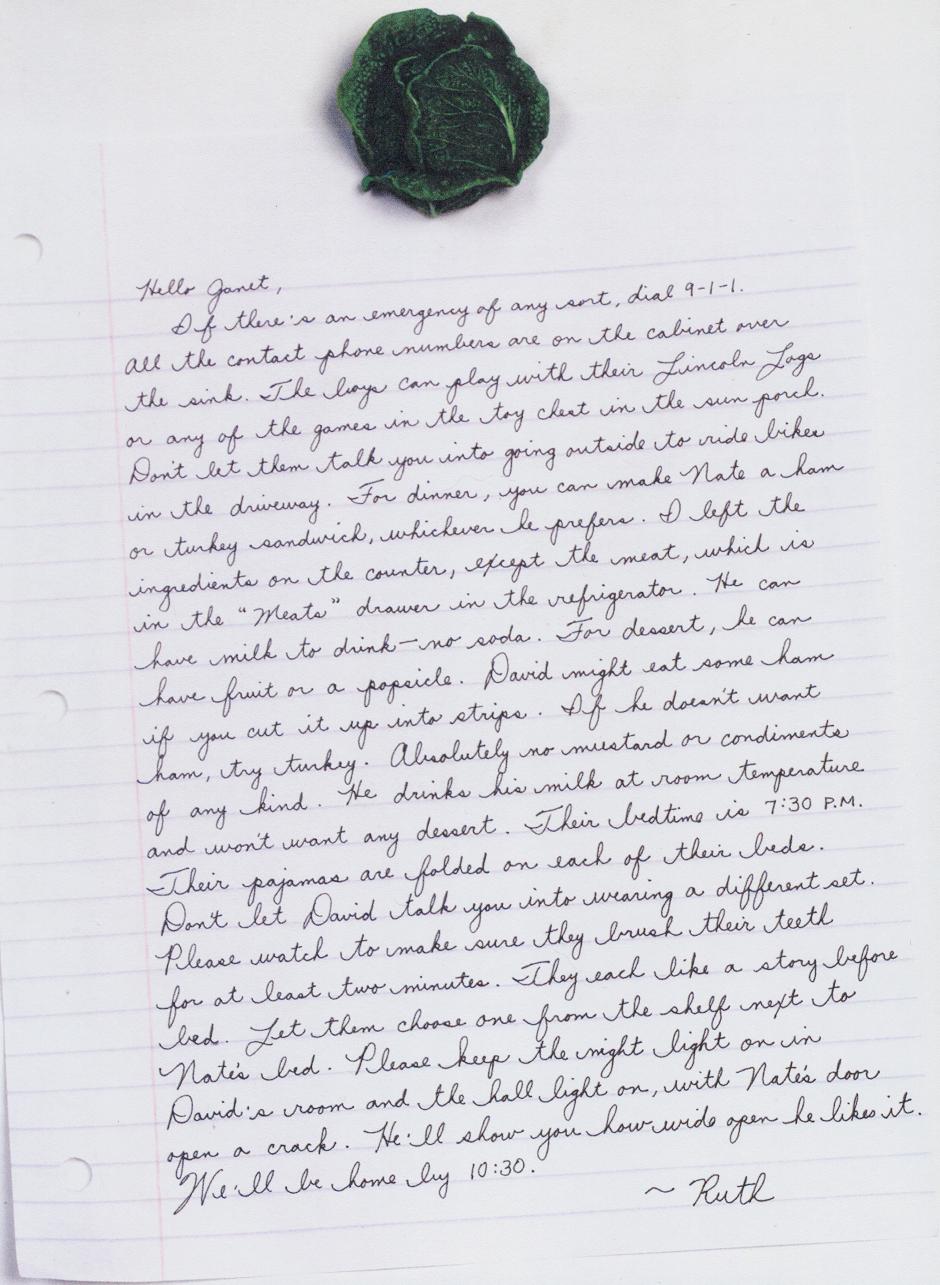 Hello Janet,
If there's an emergency of any sort, dial 9-1-1.
All the contact phone numbers are on the cabinet over
the sink. The boys can play with their Lincoln Logs
or any of the games in the toy chest in the sun porch.
Don't let them talk you into going outside to ride bikes
in the driveway. For dinner, you can make Nate a ham
or turkey sandwich, whichever he prefers. I left the
ingredients on the counter, except the meat, which is
in the "Meats" drawer in the refrigerator. He can
have milk to drink—no soda. For dessert, he can
have fruit or a popsicle. David might eat some ham
if you cut it up into strips. If he doesn't want
ham, try turkey. Absolutely no mustard or condiments
of any kind. He drinks his milk at room temperature
and won't want any dessert. Their bedtime is 7:30 P.M.
Their pajamas are folded on each of their beds.
Don't let David talk you into wearing a different set.
Please watch to make sure they brush their teeth
for at least two minutes. They each like a story before
bed. Let them choose one from the shelf next to
Nate's bed. Please keep the night light on in
David's room and the hall light on, with Nate's door
open a crack. He'll show you how wide open he likes it.
We'll be home by 10:30.
~ Ruth